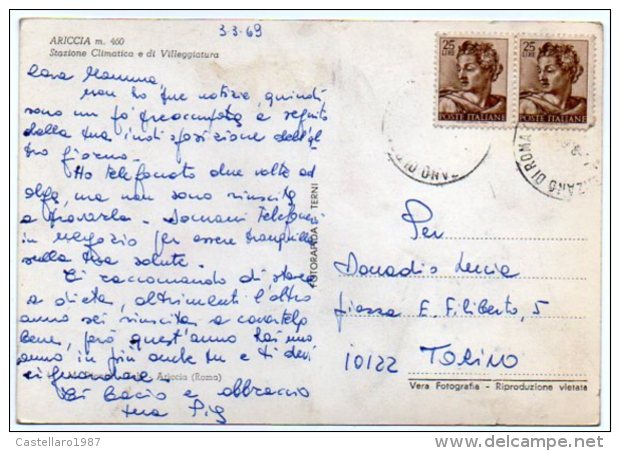 3-3-69
ARICCIA m. 460
Stazione Climatica e di Villeggiatura
Cara Mamma
non ho tue notizie, quindi
sono un po' preoccupata a seguito
della tua indisposizione dell'al
tro giorno.
Ho telefonato due volte ad
Olga, ma non sono riuscita
a trovarla. Domani telefonerò
in negozio per essere tranquilla
sulla tua salute.
Ti raccomando di stare
a dieta, altrimenti l'altro
anno sei riuscita a cavartela
bene, però quest'anno hai un
anno in più anche tu e ti devi
riguardare.
Ariccia (Roma)
Ti bacio e abbraccio
tua
FOTORAPIDA TERNI
25 LIRE
POSTE ITALIANE
25 LIRE
POSTE ITALIANE
ZANO DI ROMA
Per
Donadio Lucia
piazza E. Filiberto, 5
10122 TORINO
Vera Fotografia - Riproduzione vietata
Castellaro1987